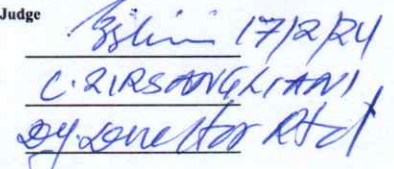 Judge
17/2/24
C. ZIRSANGLIANI
Dy. Director Rtd